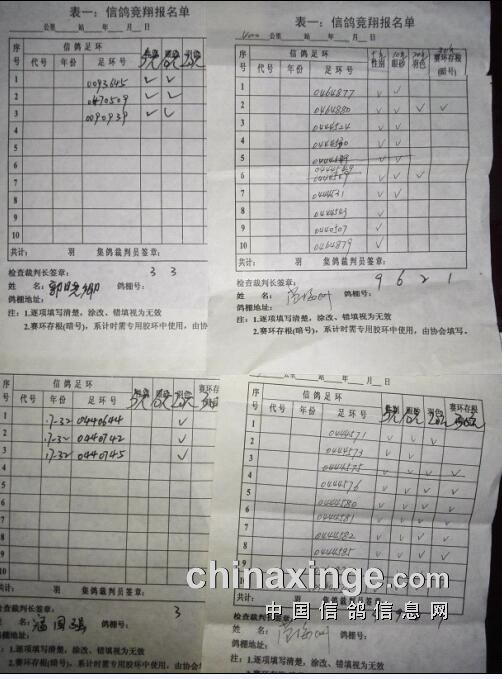 表一：信鸽竞翔报名单
公里 站 年 月 日
序号 信鸽足环
代号 年份 足环号
1 0093645 ✓ ✓
2 0470509 ✓ ✓
3 0090939 ✓ ✓
4
5
6
7
8
9
10
共计： 羽 集鸽裁判员签章：
检查裁判长签章： 3 3
姓 名： 鸽棚号：
鸽棚地址：
注：1.逐项填写清楚，涂改、错填视为无效
2.赛环存根(暗号)，系计时需专用胶环中使用，由协
表一：信鸽竞翔报名单
公里 站 年 月 日
序号 信鸽足环 赛环存根(暗号)
代号 年份 足环号 性别 眼砂 羽色
1 0464877 ✓ ✓
2 0464880 ✓ ✓ ✓ ✓
3 0444524 ✓ ✓
4 ✓ ✓
5
6 ✓ ✓ ✓
7 ✓ ✓
8 ✓
9 0440507 ✓
10 0464879 ✓
共计： 羽 集鸽裁判员签章：
检查裁判长签章： 9 6 2 1
姓 名： 鸽棚号：
鸽棚地址：
注：1.逐项填写清楚，涂改、错填视为无效
2.赛环存根(暗号)，系计时需专用胶环中使用，由协会填写。
年 月 日
序号 信鸽足环 赛环存根
代号 年份 足环号
1 17-32 0440644 ✓
2 17-32 0440742 ✓
3 17-32 0440745 ✓
4
5
6
7
8
9
10
共计： 羽 集鸽裁判员签章：
检查裁判长签章： 3
姓 名： 鸽棚号：
鸽棚地址：
注：1.逐项填写清楚，涂改、错填视为无效
2.赛环存根(暗号)，系计时需专用胶环中使用，由协会
年 月 日
序号 信鸽足环 性别 眼砂 羽色 赛环存根
代号 年份 足环号
1 0444571 ✓ ✓ ✓
2 0444573 ✓ ✓
3 0444575 ✓ ✓ ✓ ✓
4 0444576 ✓ ✓ ✓ ✓
5 0444580 ✓ ✓ ✓ ✓
6 0444581 ✓ ✓ ✓ ✓
7 0444582 ✓ ✓ ✓ ✓
8 0444585 ✓ ✓ ✓ ✓
9
共计： 羽
检查裁判长签章：
姓 名：
鸽棚地址：
注：1.逐项填写清楚，涂改、错填视为无效
2.赛环存根(暗号)，系计时需专用胶环中使用，由协会填写。
chinaxinge.com
中国信鸽信息网